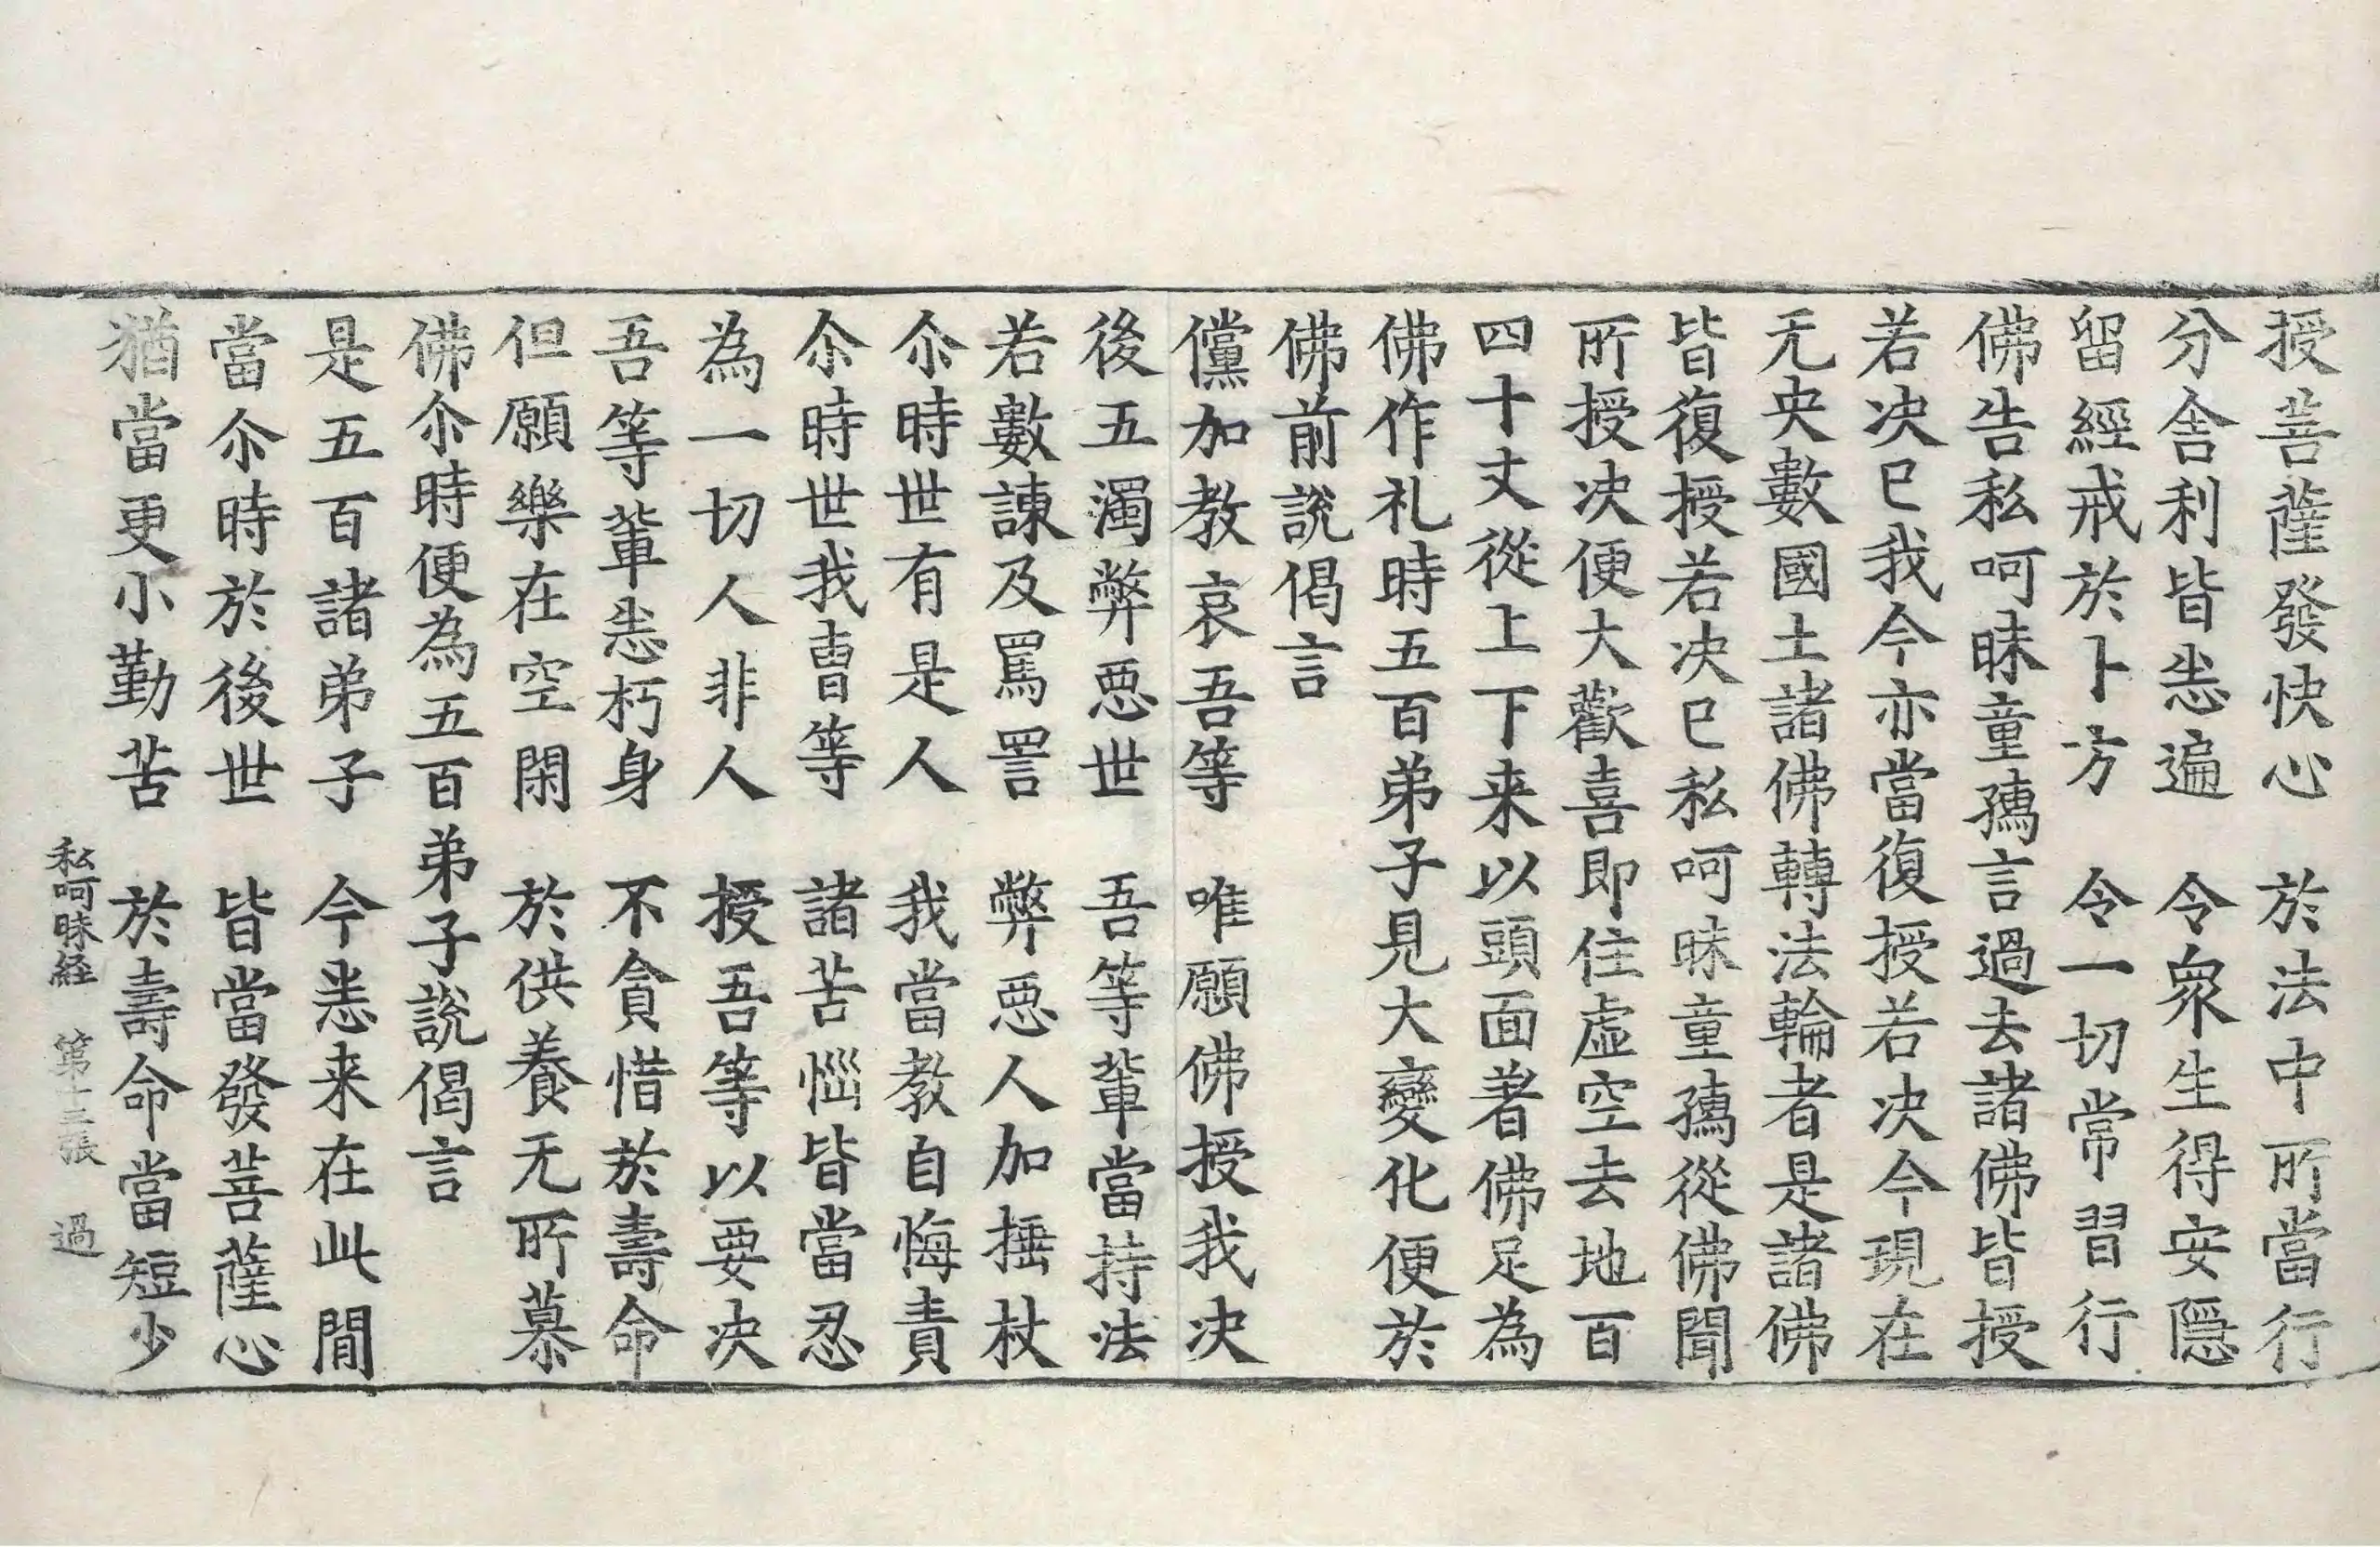 授菩薩發快心　於法中所當行
分舍利皆悉遍　令衆生得安隱
留經戒於卜方　令一切常習行
佛告私呵昧童孺言過去諸佛皆授
若决已我今亦當復授若决今現在
无央數國土諸佛轉法輪者是諸佛
皆復授若决已私呵昧童孺從佛聞
所授决便大歡喜即住虛空去地百
四十丈從上下来以頭面著佛足為
佛作礼時五百弟子見大變化便於
佛前說偈言
儻加教哀吾等　唯願佛授我决
後五濁弊惡世　吾等輩當持法
若數諫及罵詈　弊惡人加捶杖
尒時世有是人　我當教自悔責
尒時世我曹等　諸苦惱皆當忍
為一切人非人　授吾等以要决
吾等輩悉朽身　不貪惜於壽命
但願樂在空閑　於供養无所慕
佛尒時便為五百弟子說偈言
是五百諸弟子　今悉来在此間
當尒時於後世　皆當發菩薩心
猶當更小勤苦　於壽命當短少
私呵昧経　第十三張　過